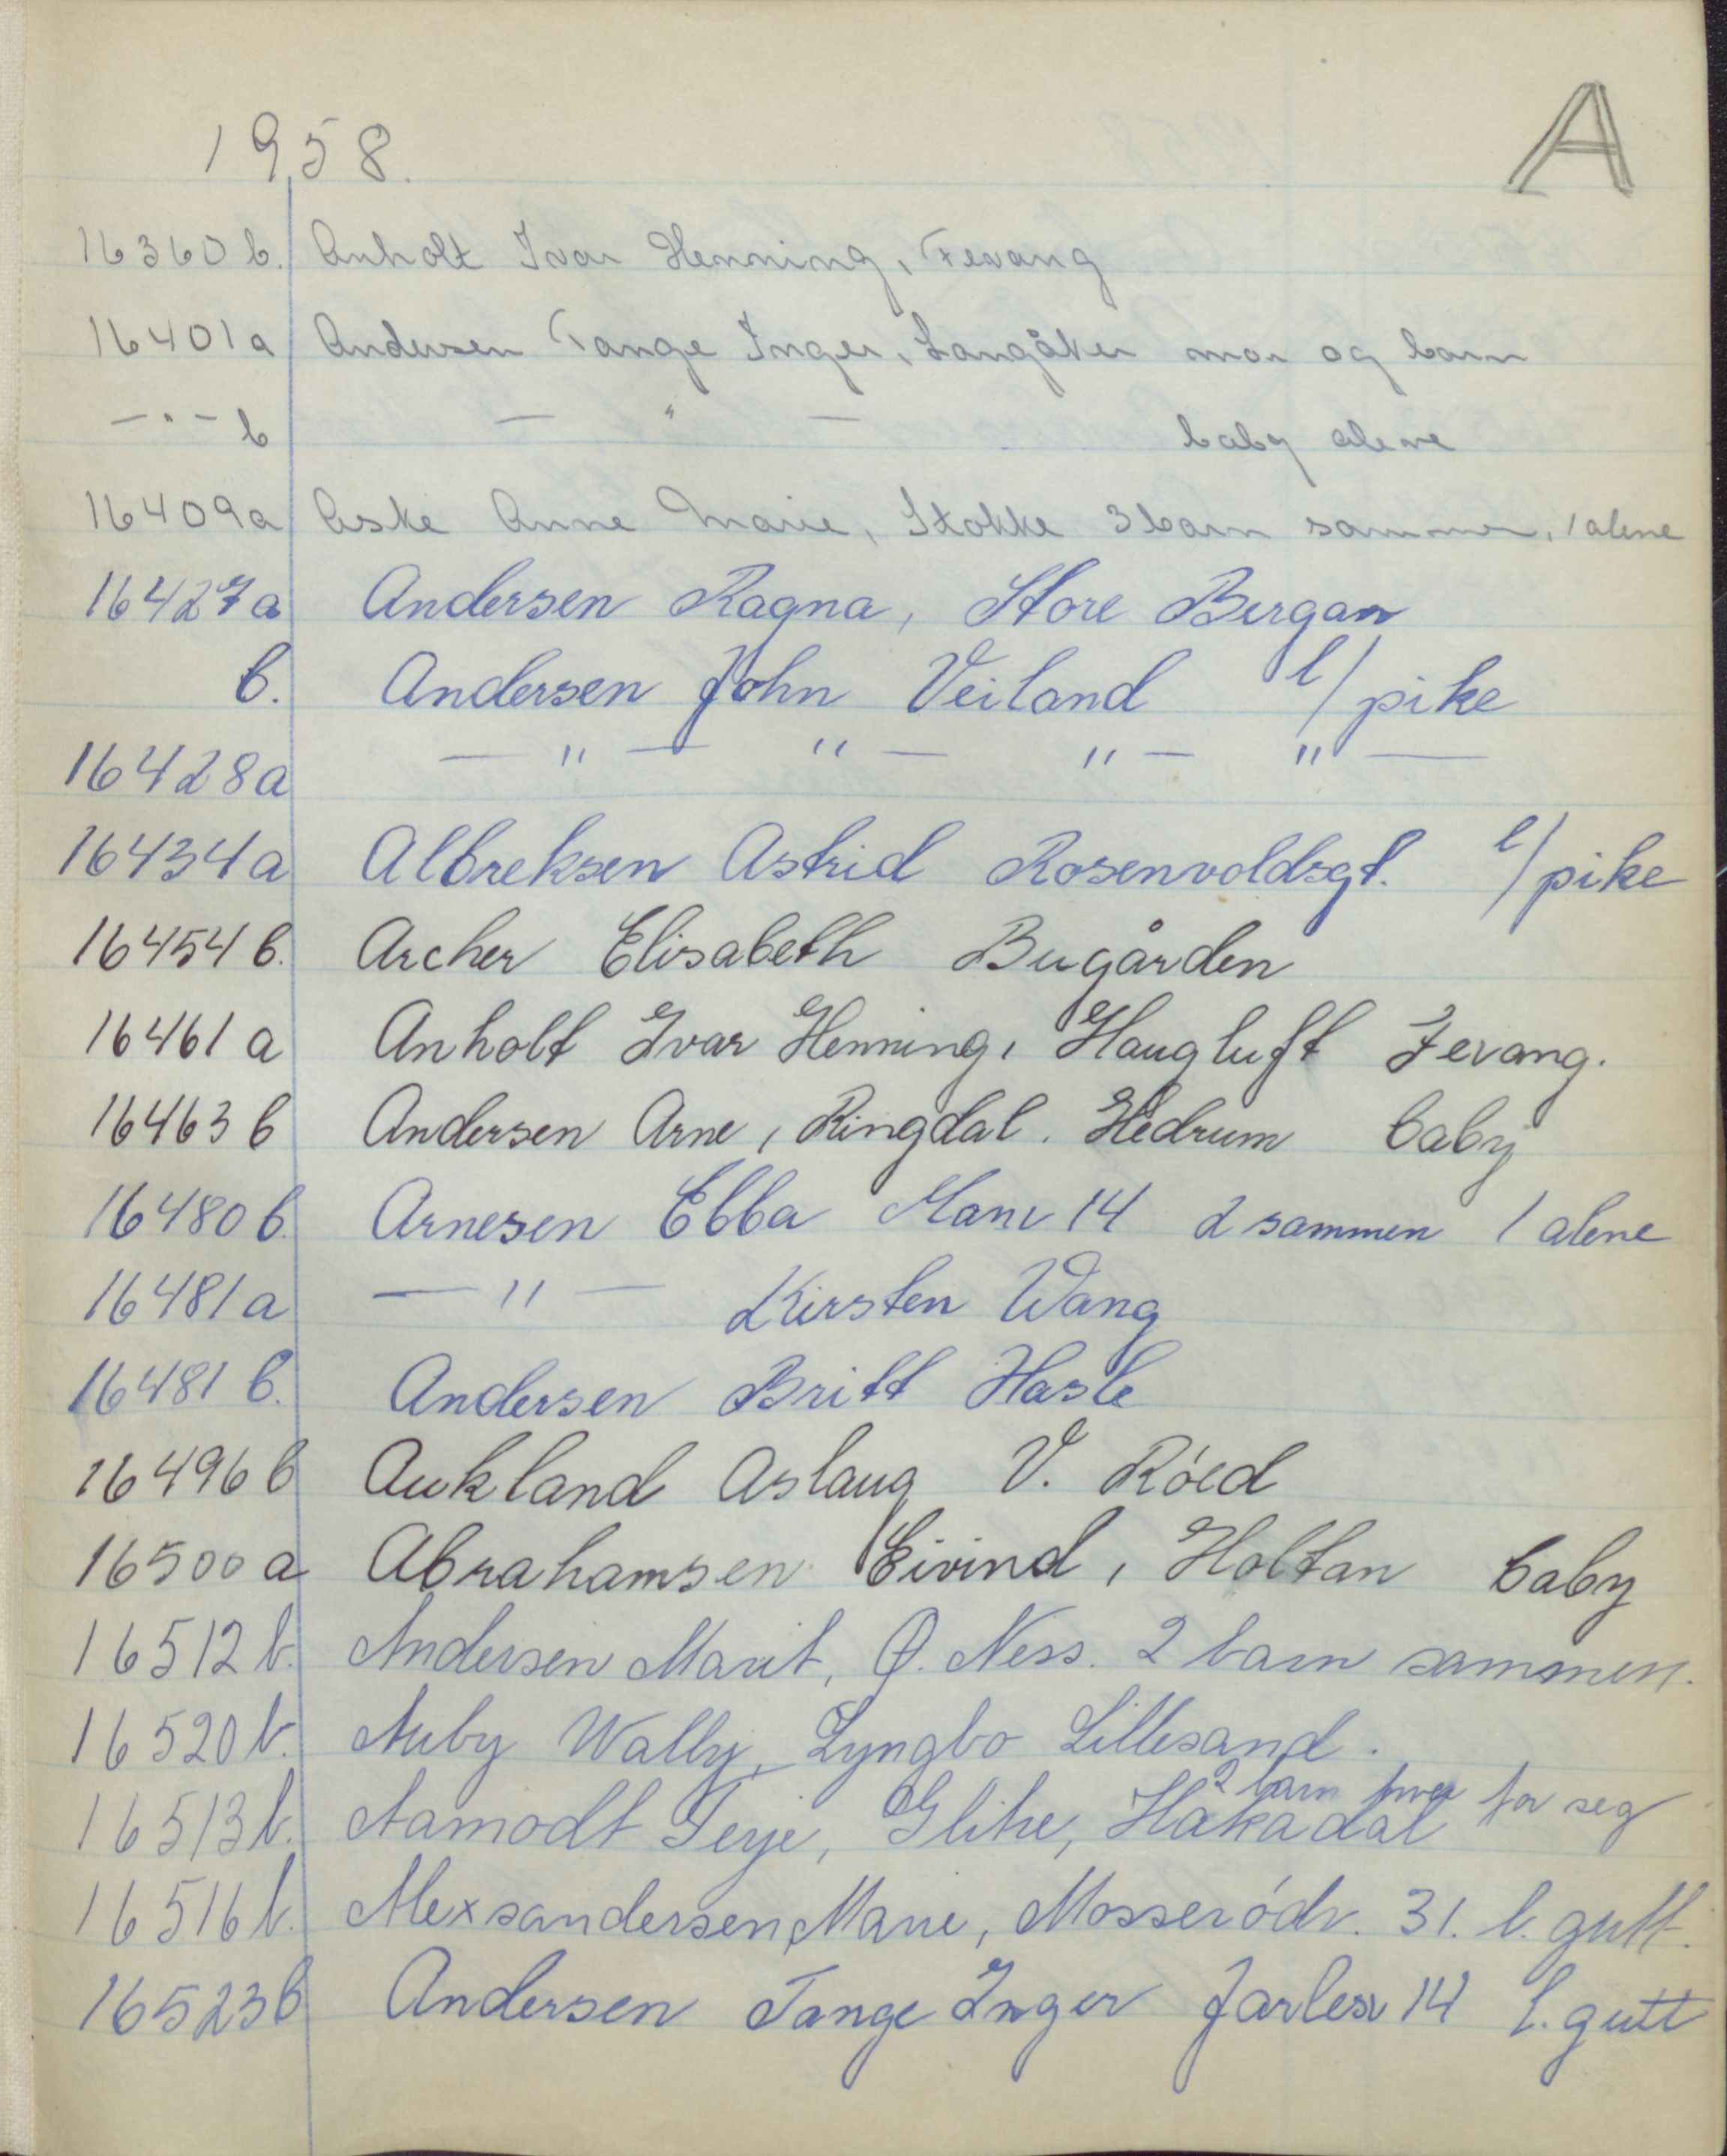 1958.
A
16360 b. Anholt Ivar Henning, Fevang
16401 a Andersen Tange Inger, Langåker mor og barn
— " — b — " — baby alene
16409 a Aske Anne Marie, Stokke 3 barn sammen, 1 alene
16427 a Andersen Ragna, Store Bergan
b. Andersen John Veiland l/pike
16428 a — " — " — " — " —
16434 a Albreksen Astrid Rosenvoldsgt. l/pike
16454 b. Archer Elisabeth Bugården
16461 a Anholt Ivar Henning, Haugluft Fevang.
16463 b Andersen Arne, Ringdal. Hedrum baby
16480 b. Arnesen Ebba 14 2 sammen 1 alene
16481 a — " — Kirsten Wang
16481 b. Andersen Britt Hasle
16496 b Aukland Aslaug V. Róed
16500 a Abrahamsen Eivind, Holtan baby
16512 b. Andersen Marit, Ø. Ness. 2 barn sammen.
16520 b. Auby Wally, Lyngbo Lillesand.
2 barn hver for seg
16513 b. Aamodt Terje, Glitre, Hakadal
16516 b. Alexsandersen, Marie, Mosseródv. 31. l. gutt.
16523 b Andersen Tange Inger Jarlesv 14 l. gutt